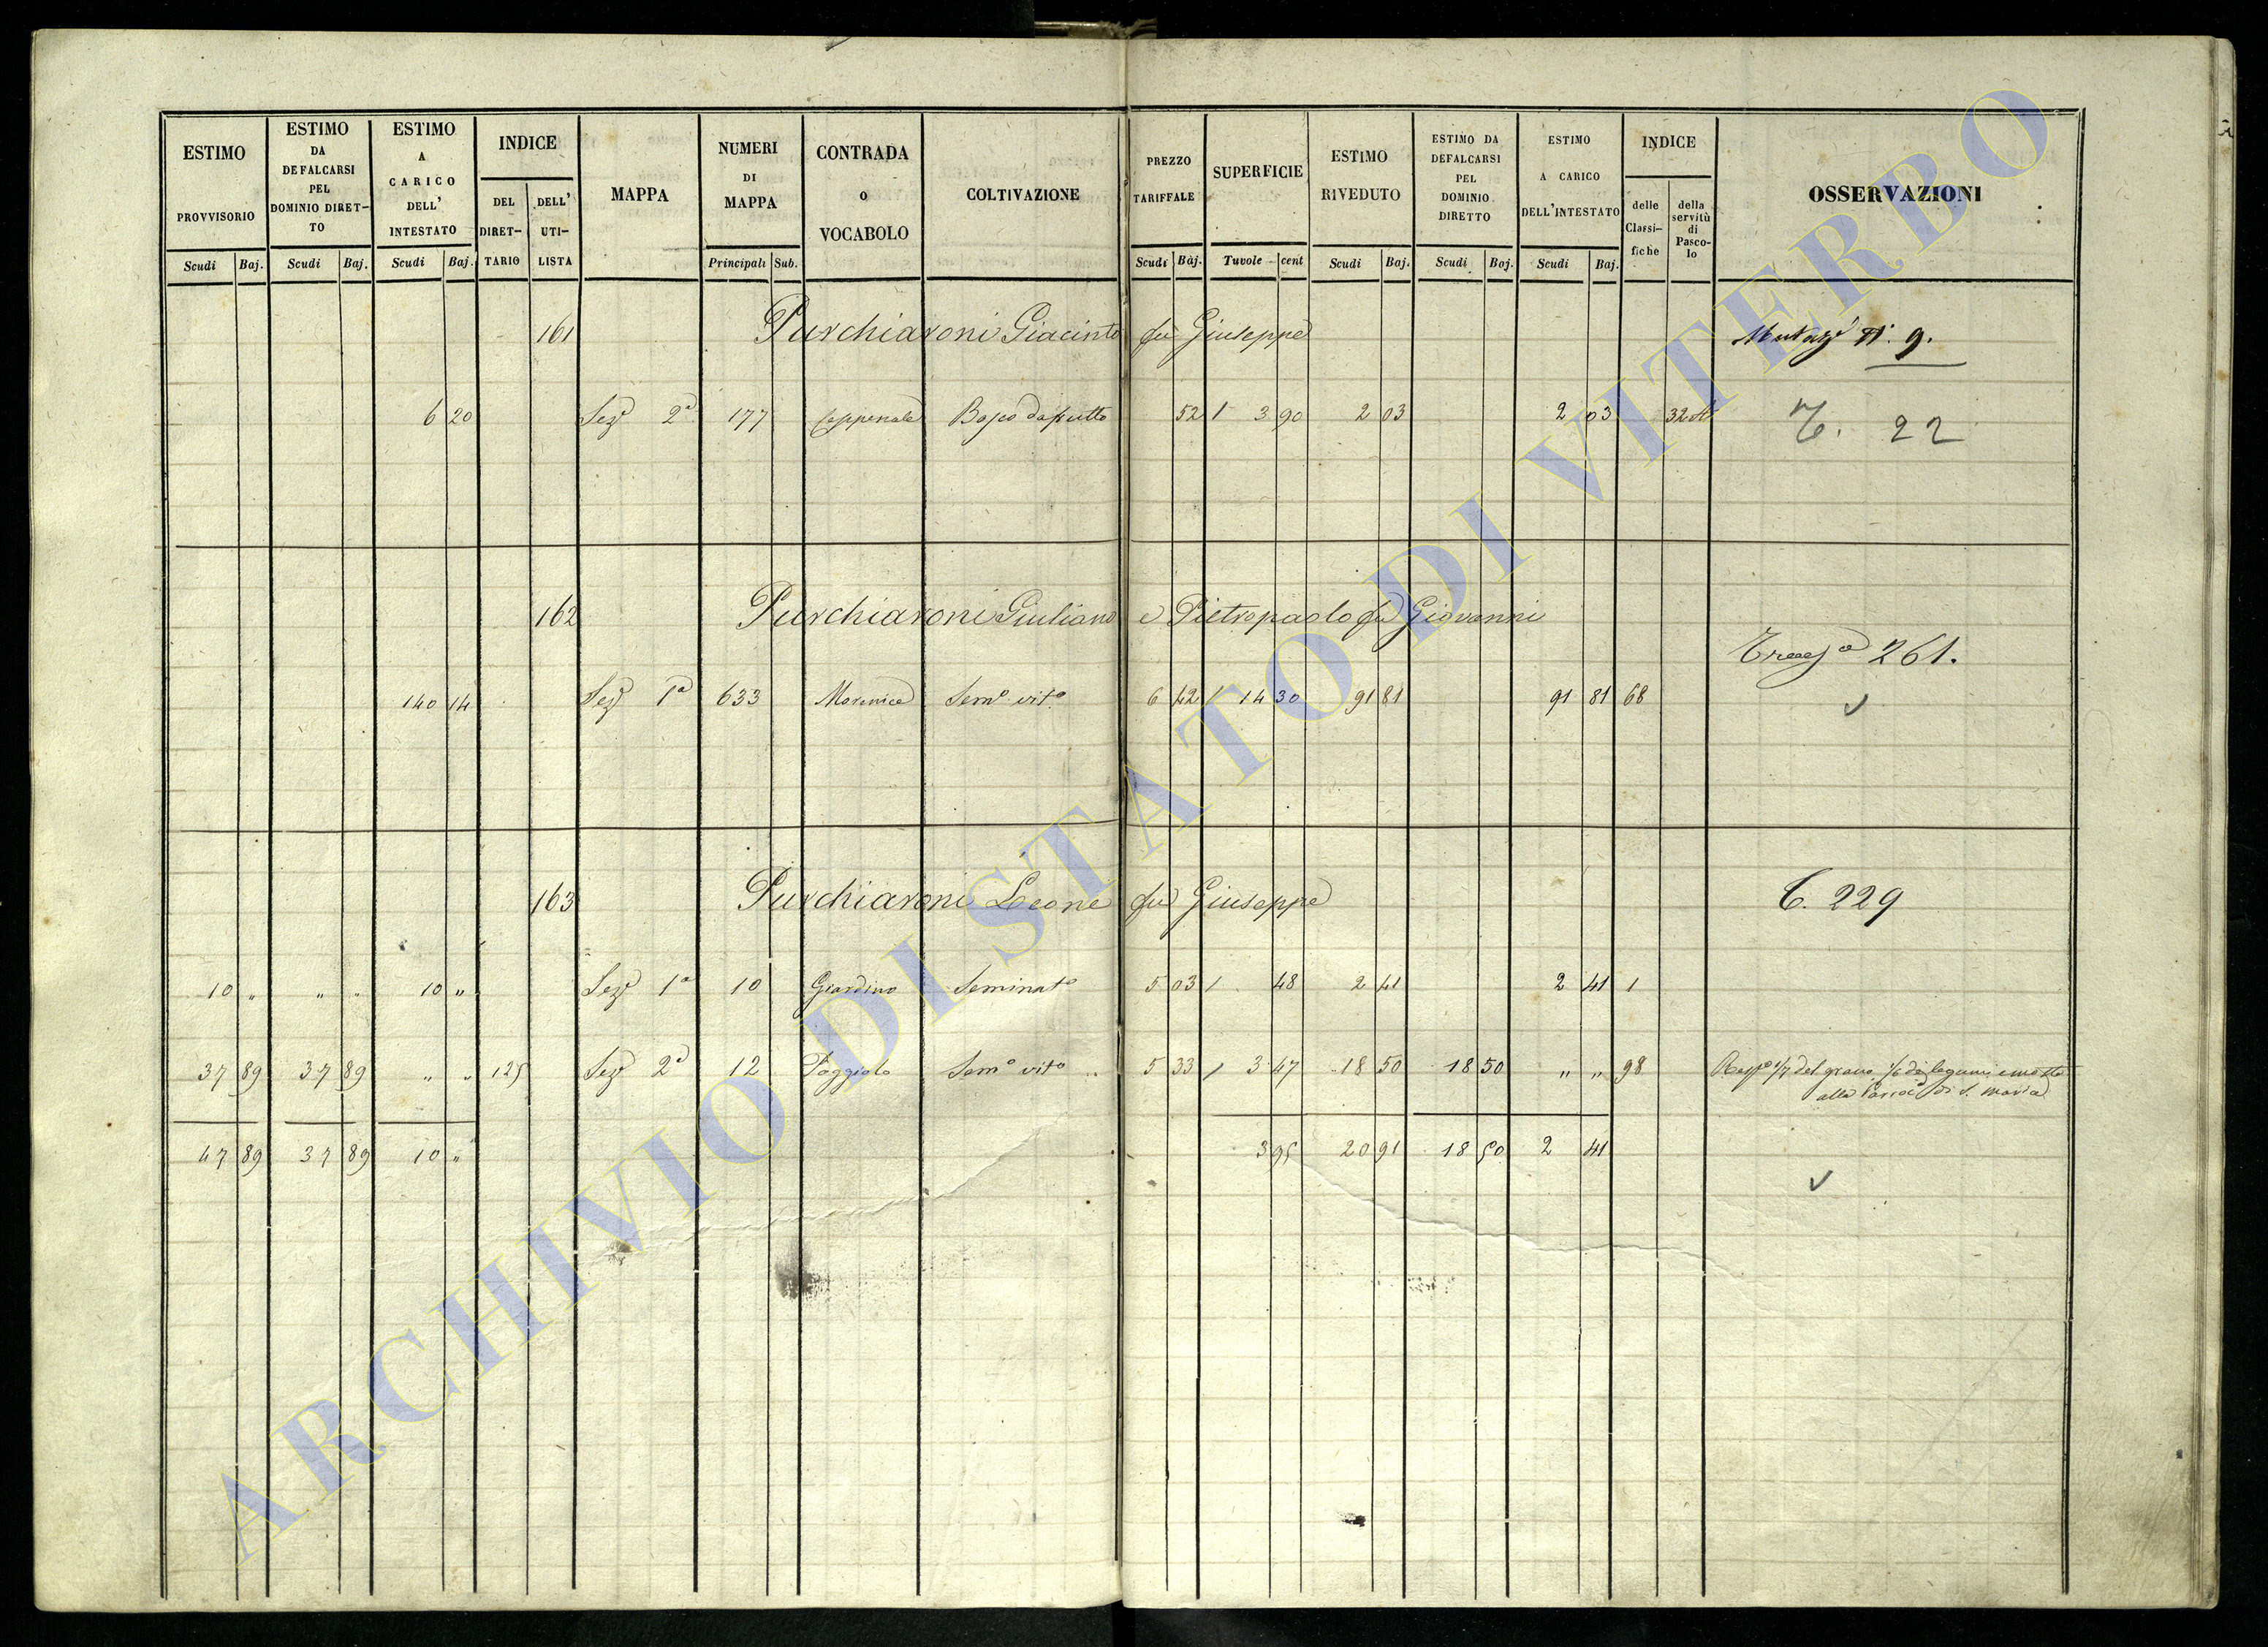 ESTIMO PROVVISORIO Scudi Baj.
ESTIMO DA DEFALCARSI PEL DOMINIO DIRET- TO Scudi Baj.
ESTIMO A CARICO DELL' INTESTATO Scudi Baj.
INDICE DEL DIRET- TARIO DELL' UTI- LISTA
MAPPA
NUMERI DI MAPPA Principali Sub.
CONTRADA o VOCABOLO
COLTIVAZIONE
PREZZO TARIFFALE Scudi Baj.
SUPERFICIE Tuvole cent
ESTIMO RIVEDUTO Scudi Baj.
ESTIMO DA DEFALCARSI PEL DOMINIO DIRETTO Scudi Baj.
ESTIMO A CARICO DELL'INTESTATO Scudi Baj.
INDICE delle Classi- fiche della servitù di Pasco- lo
OSSERVAZIONI
161 Purchiaroni Giacinto fu Giuseppe N. 9.
6 20 Sez.e 2a 177 Bosco da frutto 52 1 3 90 2 03 2 03 32 T. 22
162 Purchiaroni Giuliano e Pietropaolo fu Giovanni
261.
140 14 Sez.e 1a 633 Sem.o vit.o 6 42 1 14 30 91 81 91 81 68 ✓
163 Purchiaroni Leone fu Giuseppe T. 229
10 " " " 10 " Sez.e 1a 10 Giardino Seminato 5 03 1 48 2 41 2 41 1
37 89 37 89 " " 125 Sez.e 2a 12 Poggiolo Sem.o vit.o 5 33 1 3 47 18 50 18 50 " " 98 1/7 del grano 1/6 de legumi e mosto
alla di S. Maria
47 89 37 89 10 " 3 95 20 91 18 50 2 41
✓
ARCHIVIO DI STATO DI VITERBO